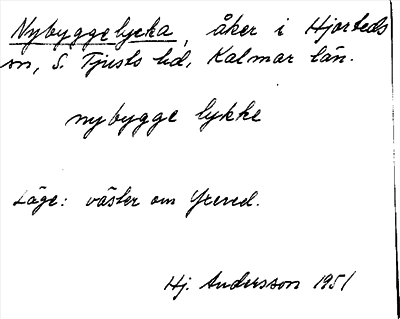 Nybyggelycka, åker i Hjorteds
sn, S. Tjusts hd, Kalmar län.
nybygge lykke
Läge: väster om Yxered.
Hj. Andersson 1951